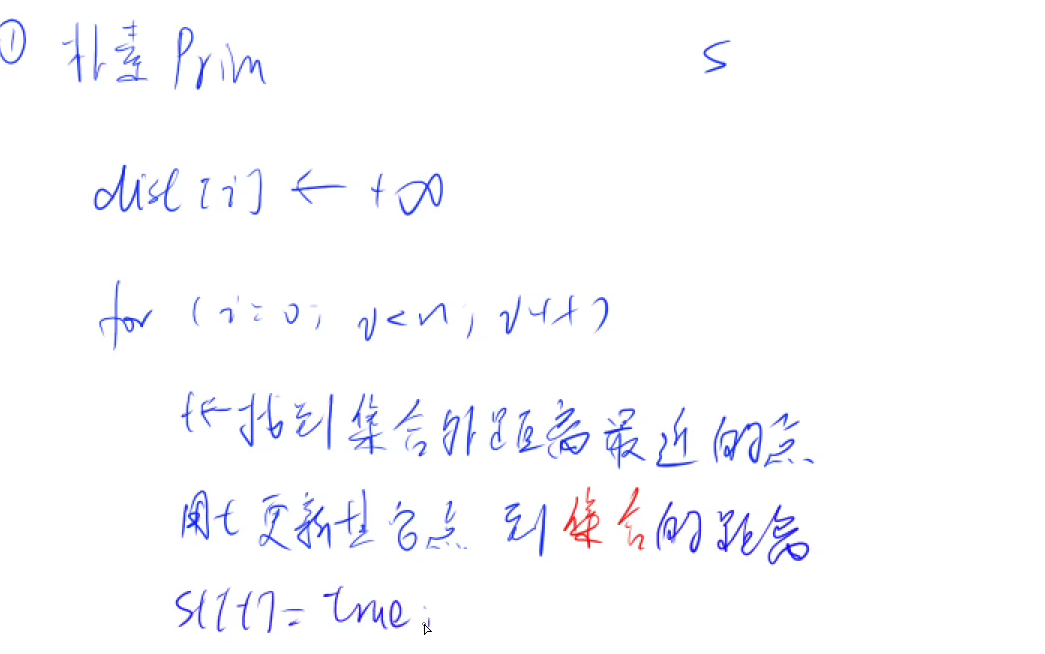 ① 朴素 Prim S
dist[i] ← +∞
for (i=0; i<n; i++)
t←找到集合外距离最近的点
用t更新其它点 到集合的距离
s[t]=true;